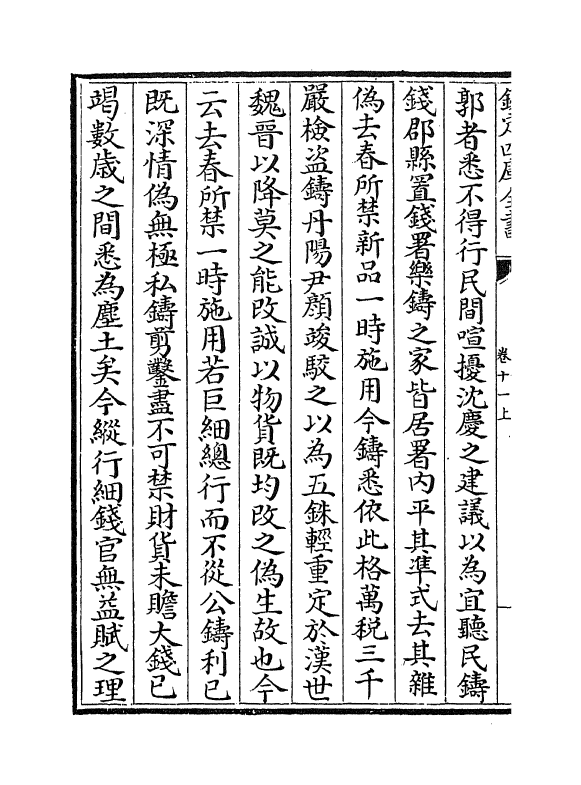 欽定四庫全書
卷十一上
郭者悉不得行民間喧擾沈慶之建議以為宜聽民鑄
錢郡縣置錢署樂鑄之家皆居署內平其準式去其雜
偽去春所禁新品一時施用今鑄悉依此格萬税三千
嚴檢盜鑄丹陽尹顔竣駮之以為五銖輕重定於漢世
魏晉以降莫之能改誠以物貨既均改之偽生故也今
云去春所禁一時施用若巨細總行而不從公鑄利已
既深情偽無極私鑄剪鑿盡不可禁財貨未贍大錢已
竭數歳之間悉為塵土矣今縱行細錢官無益賦之理